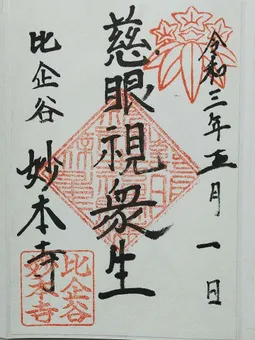 令和三年五月一日
慈眼視衆生
比企谷 妙本寺
比企谷
妙本寺